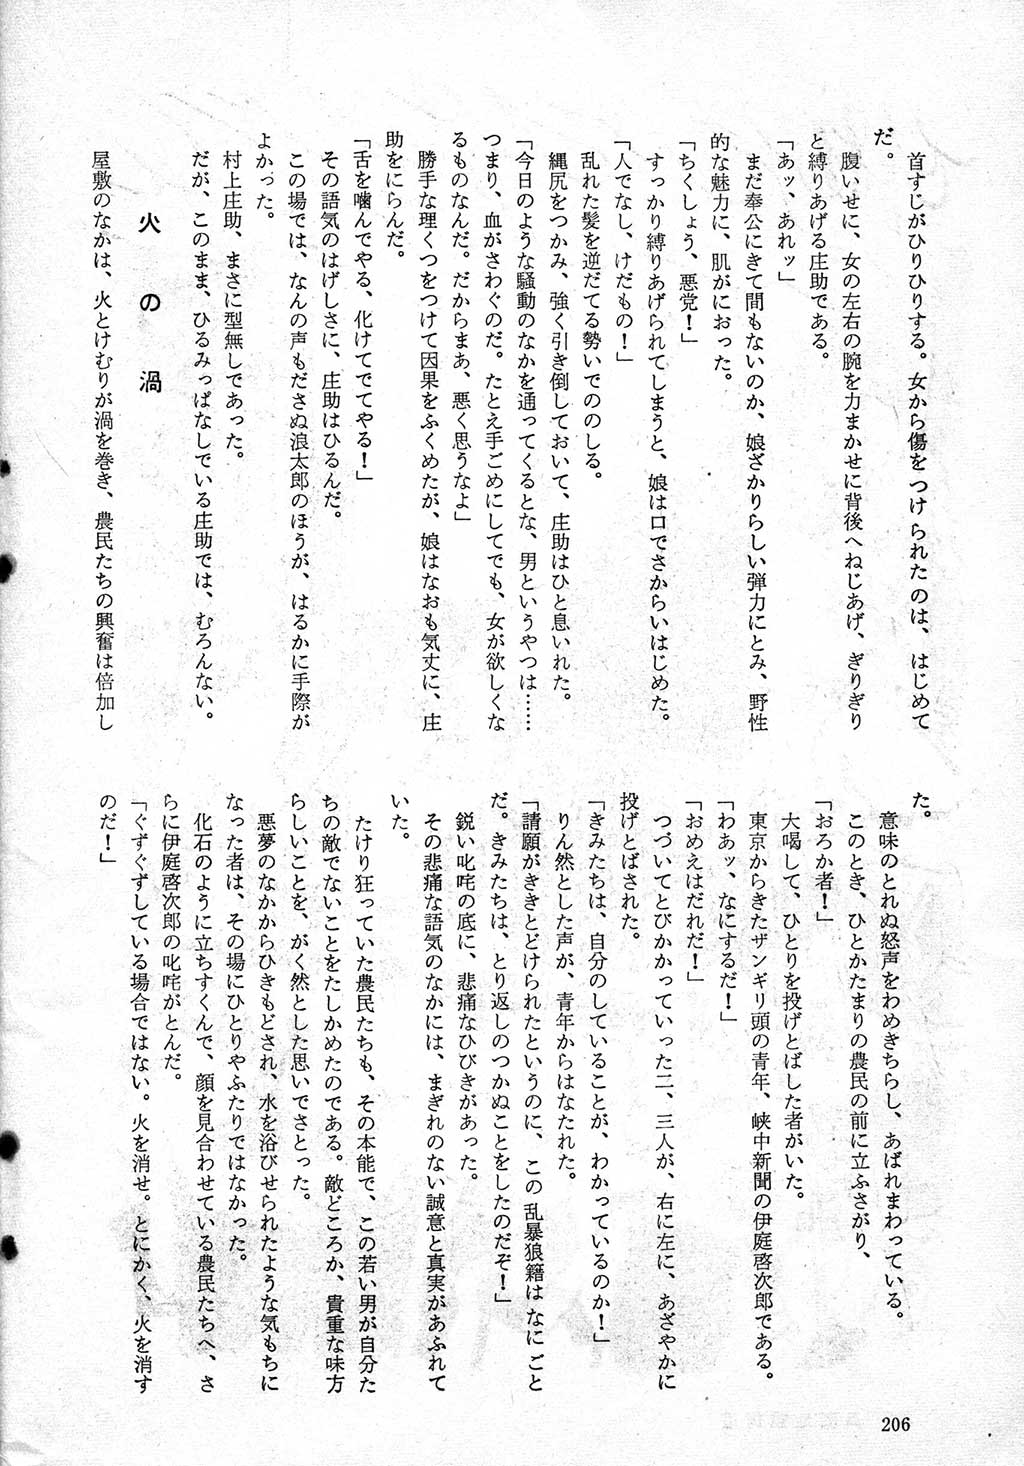 首すじがひりひりする。女から傷をつけられたのは、はじめて
だ。
腹いせに、女の左右の腕を力まかせに背後へねじあげ、ぎりぎり
と縛りあげる庄助である。
「あッ、あれッ」
まだ奉公にきて間もないのか、娘ざかりらしい弾力にとみ、野性
的な魅力に、肌がにおった。
「ちくしょう、悪党！」
すっかり縛りあげられてしまうと、娘は口でさからいはじめた。
「人でなし、けだもの！」
乱れた髪を逆だてる勢いでののしる。
縄尻をつかみ、強く引き倒しておいて、庄助はひと息いれた。
「今日のような騒動のなかを通ってくるとな、男というやつは……
つまり、血がさわぐのだ。たとえ手ごめにしてでも、女が欲しくな
るものなんだ。だからまあ、悪く思うなよ」
勝手な理くつをつけて因果をふくめたが、娘はなおも気丈に、庄
助をにらんだ。
「舌を噛んでやる、化けてでてやる！」
その語気のはげしさに、庄助はひるんだ。
この場では、なんの声もださぬ浪太郎のほうが、はるかに手際が
よかった。
村上庄助、まさに型無しであった。
だが、このまま、ひるみっぱなしでいる庄助では、むろんない。
火の渦
屋敷のなかは、火とけむりが渦を巻き、農民たちの興奮は倍加し
た。
意味のとれぬ怒声をわめきちらし、あばれまわっている。
このとき、ひとかたまりの農民の前に立ふさがり、
「おろか者！」
大喝して、ひとりを投げとばした者がいた。
東京からきたザンギリ頭の青年、峡中新聞の伊庭啓次郎である。
「わあッ、なにするだ！」
「おめえはだれだ！」
つづいてとびかかっていった二、三人が、右に左に、あざやかに
投げとばされた。
「きみたちは、自分のしていることが、わかっているのか！」
りん然とした声が、青年からはなたれた。
「請願がききとどけられたというのに、この乱暴狼籍はなにごと
だ。きみたちは、とり返しのつかぬことをしたのだぞ！」
鋭い叱咤の底に、悲痛なひびきがあった。
その悲痛な語気のなかには、まぎれのない誠意と真実があふれて
いた。
たけり狂っていた農民たちも、その本能で、この若い男が自分た
ちの敵でないことをたしかめたのである。敵どころか、貴重な味方
らしいことを、がく然とした思いでさとった。
悪夢のなかからひきもどされ、水を浴びせられたような気もちに
なった者は、その場にひとりやふたりではなかった。
化石のように立ちすくんで、顔を見合わせている農民たちへ、さ
らに伊庭啓次郎の叱咤がとんだ。
「ぐずぐずしている場合ではない。火を消せ。とにかく、火を消す
のだ！」
206